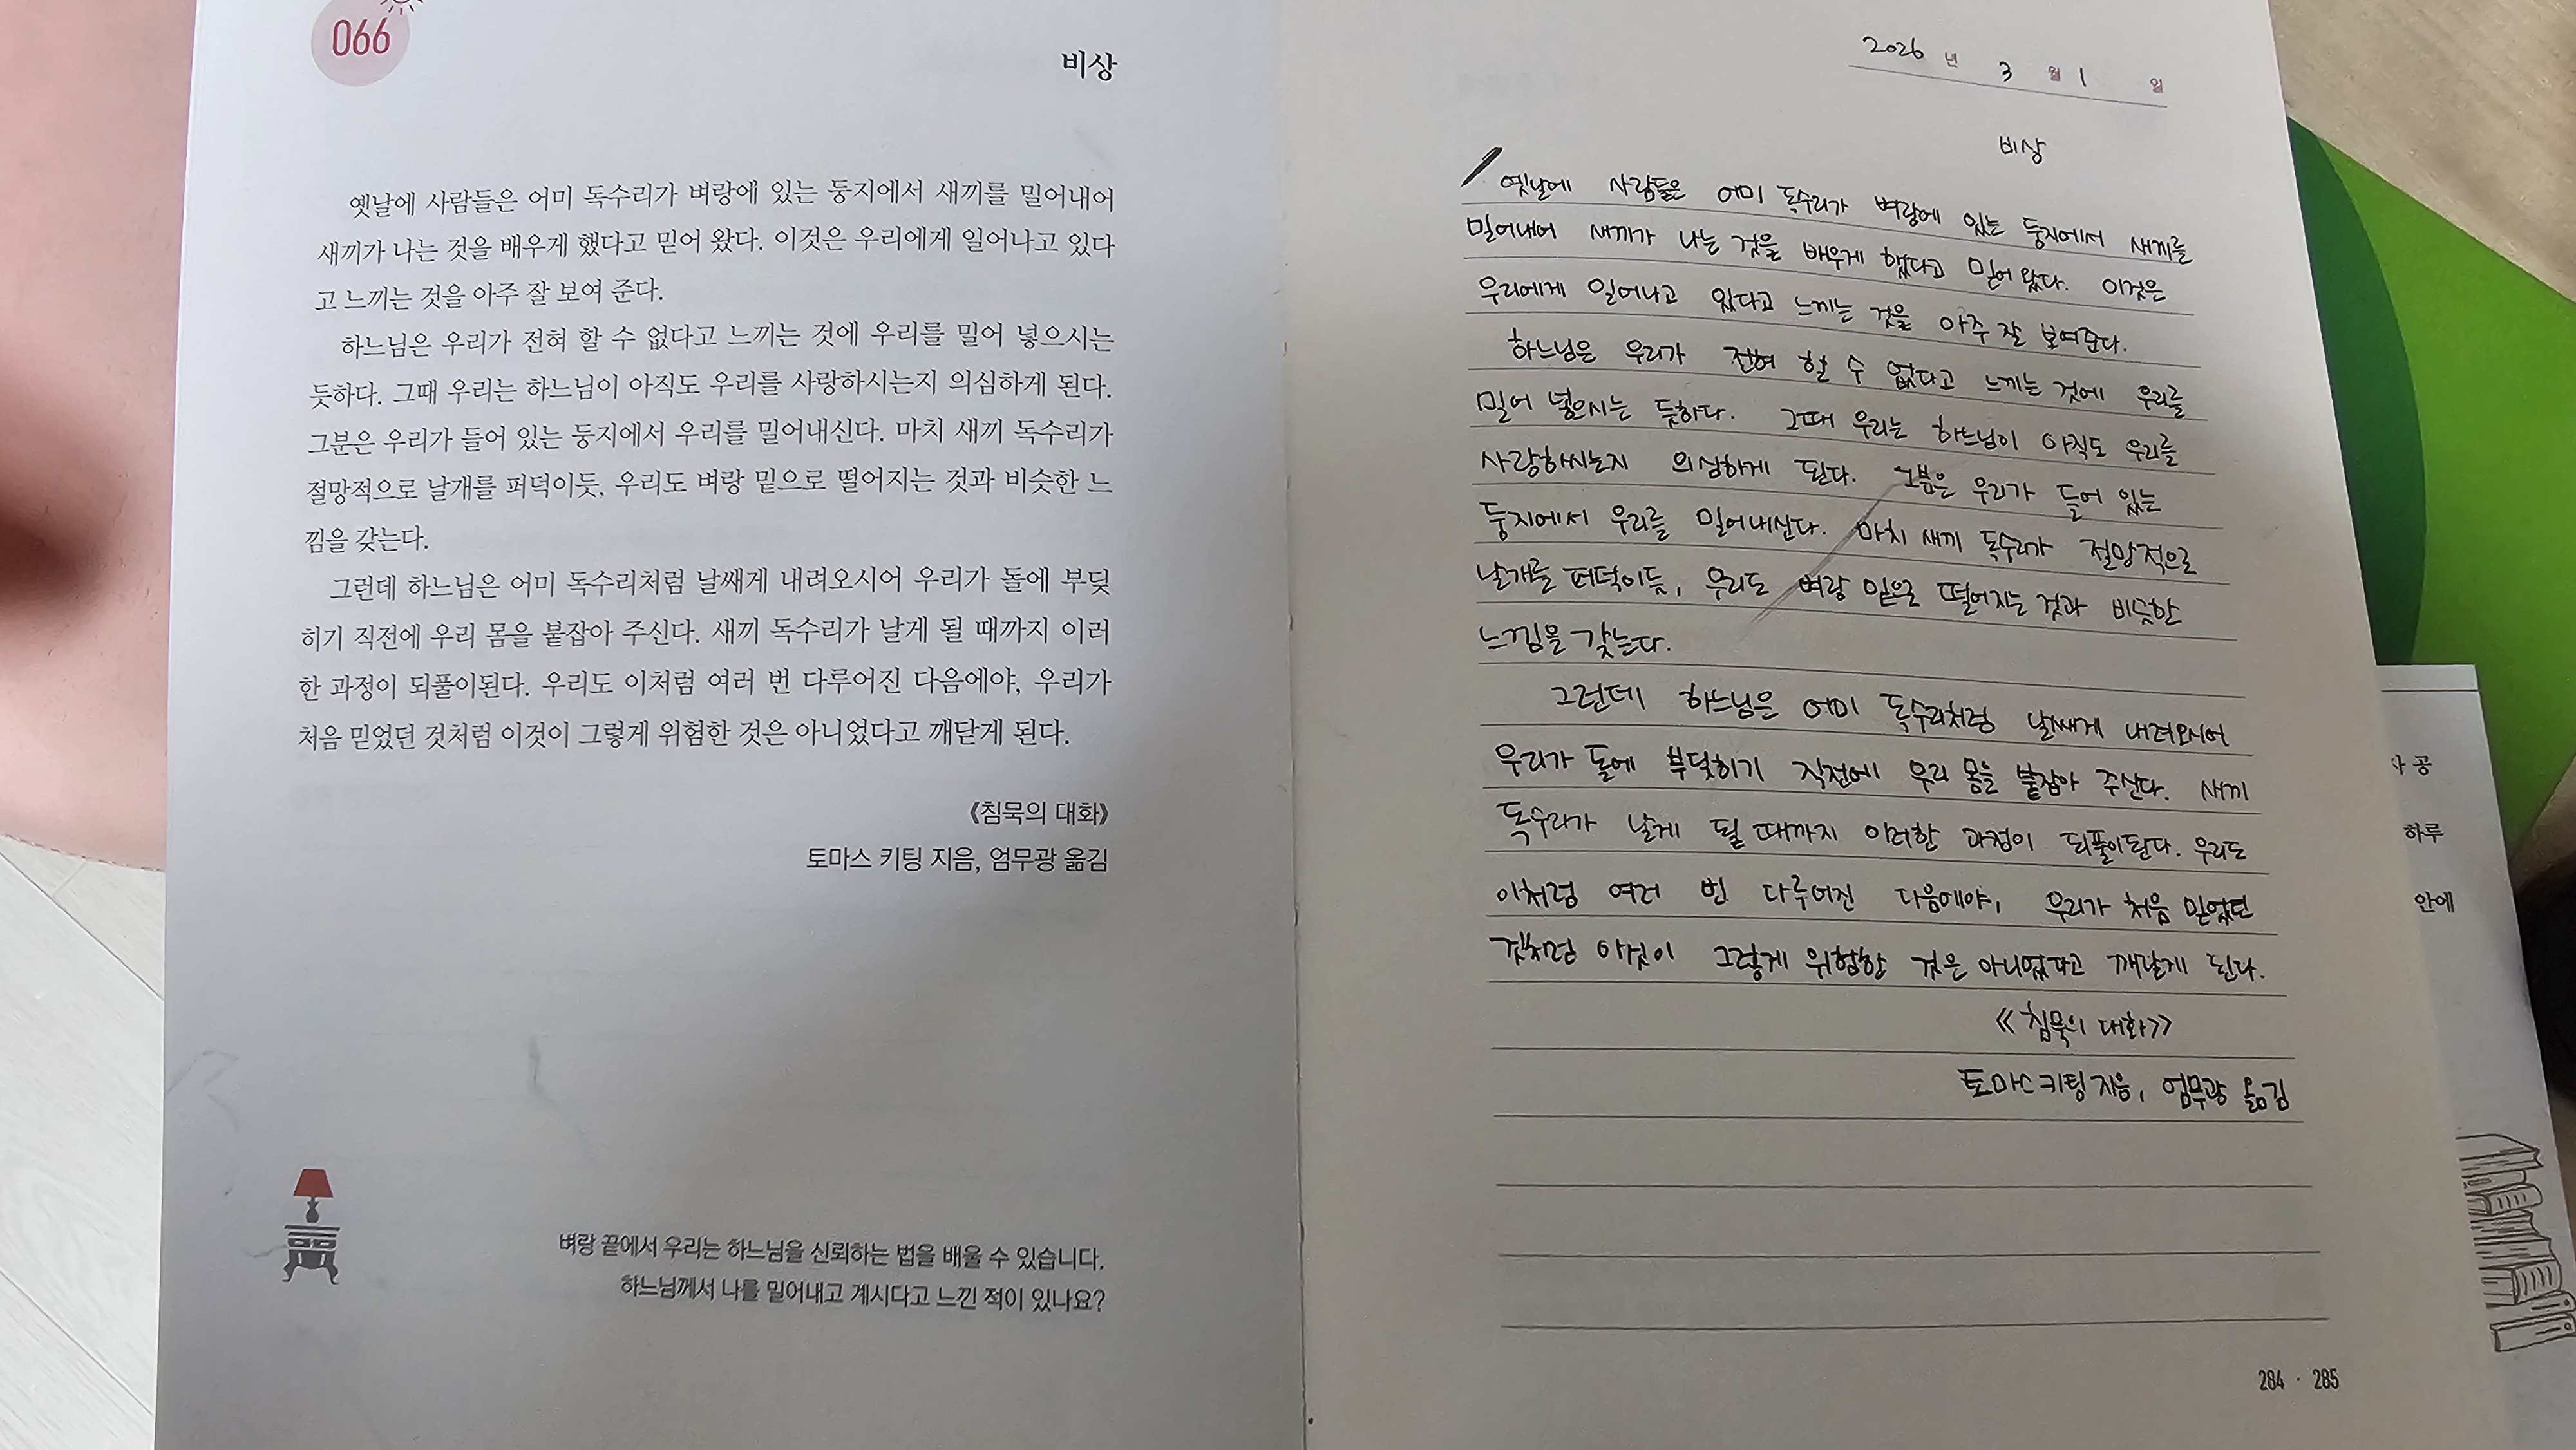 066
비상
옛날에 사람들은 어미 독수리가 벼랑에 있는 둥지에서 새끼를 밀어내어
새끼가 나는 것을 배우게 했다고 믿어 왔다. 이것은 우리에게 일어나고 있다
고 느끼는 것을 아주 잘 보여 준다.
하느님은 우리가 전혀 할 수 없다고 느끼는 것에 우리를 밀어 넣으시는
듯하다. 그때 우리는 하느님이 아직도 우리를 사랑하시는지 의심하게 된다.
그분은 우리가 들어 있는 둥지에서 우리를 밀어내신다. 마치 새끼 독수리가
절망적으로 날개를 퍼덕이듯, 우리도 벼랑 밑으로 떨어지는 것과 비슷한 느
낌을 갖는다.
그런데 하느님은 어미 독수리처럼 날쌔게 내려오시어 우리가 돌에 부딪
히기 직전에 우리 몸을 붙잡아 주신다. 새끼 독수리가 날게 될 때까지 이러
한 과정이 되풀이된다. 우리도 이처럼 여러 번 다루어진 다음에야, 우리가
처음 믿었던 것처럼 이것이 그렇게 위험한 것은 아니었다고 깨닫게 된다.
《침묵의 대화》
토마스 키팅 지음, 엄무광 옮김
벼랑 끝에서 우리는 하느님을 신뢰하는 법을 배울 수 있습니다.
하느님께서 나를 밀어내고 계시다고 느낀 적이 있나요?
2026 년 3 월 1 일
비상
옛날에 사람들은 어미 독수리가 벼랑에 있는 둥지에서 새끼를
밀어내어 새끼가 나는 것을 배우게 했다고 믿어 왔다. 이것은
우리에게 일어나고 있다고 느끼는 것을 아주 잘 보여준다.
하느님은 우리가 전혀 할 수 없다고 느끼는 것에 우리를
밀어 넣으시는 듯하다. 그때 우리는 하느님이 아직도 우리를
사랑하시는지 의심하게 된다. 그분은 우리가 들어 있는
둥지에서 우리를 밀어내신다. 마치 새끼 독수리가 절망적으로
날개를 퍼덕이듯, 우리도 벼랑 밑으로 떨어지는 것과 비슷한
느낌을 갖는다.
그런데 하느님은 어미 독수리처럼 날쌔게 내려오시어
우리가 돌에 부딪히기 직전에 우리 몸을 붙잡아 주신다. 새끼
독수리가 날게 될 때까지 이러한 과정이 되풀이된다. 우리도
이처럼 여러 번 다루어진 다음에야, 우리가 처음 믿었던
것처럼 이것이 그렇게 위험한 것은 아니었다고 깨닫게 된다.
《침묵의 대화》
토마스 키팅 지음, 엄무광 옮김
284 · 285
공
하루
안에